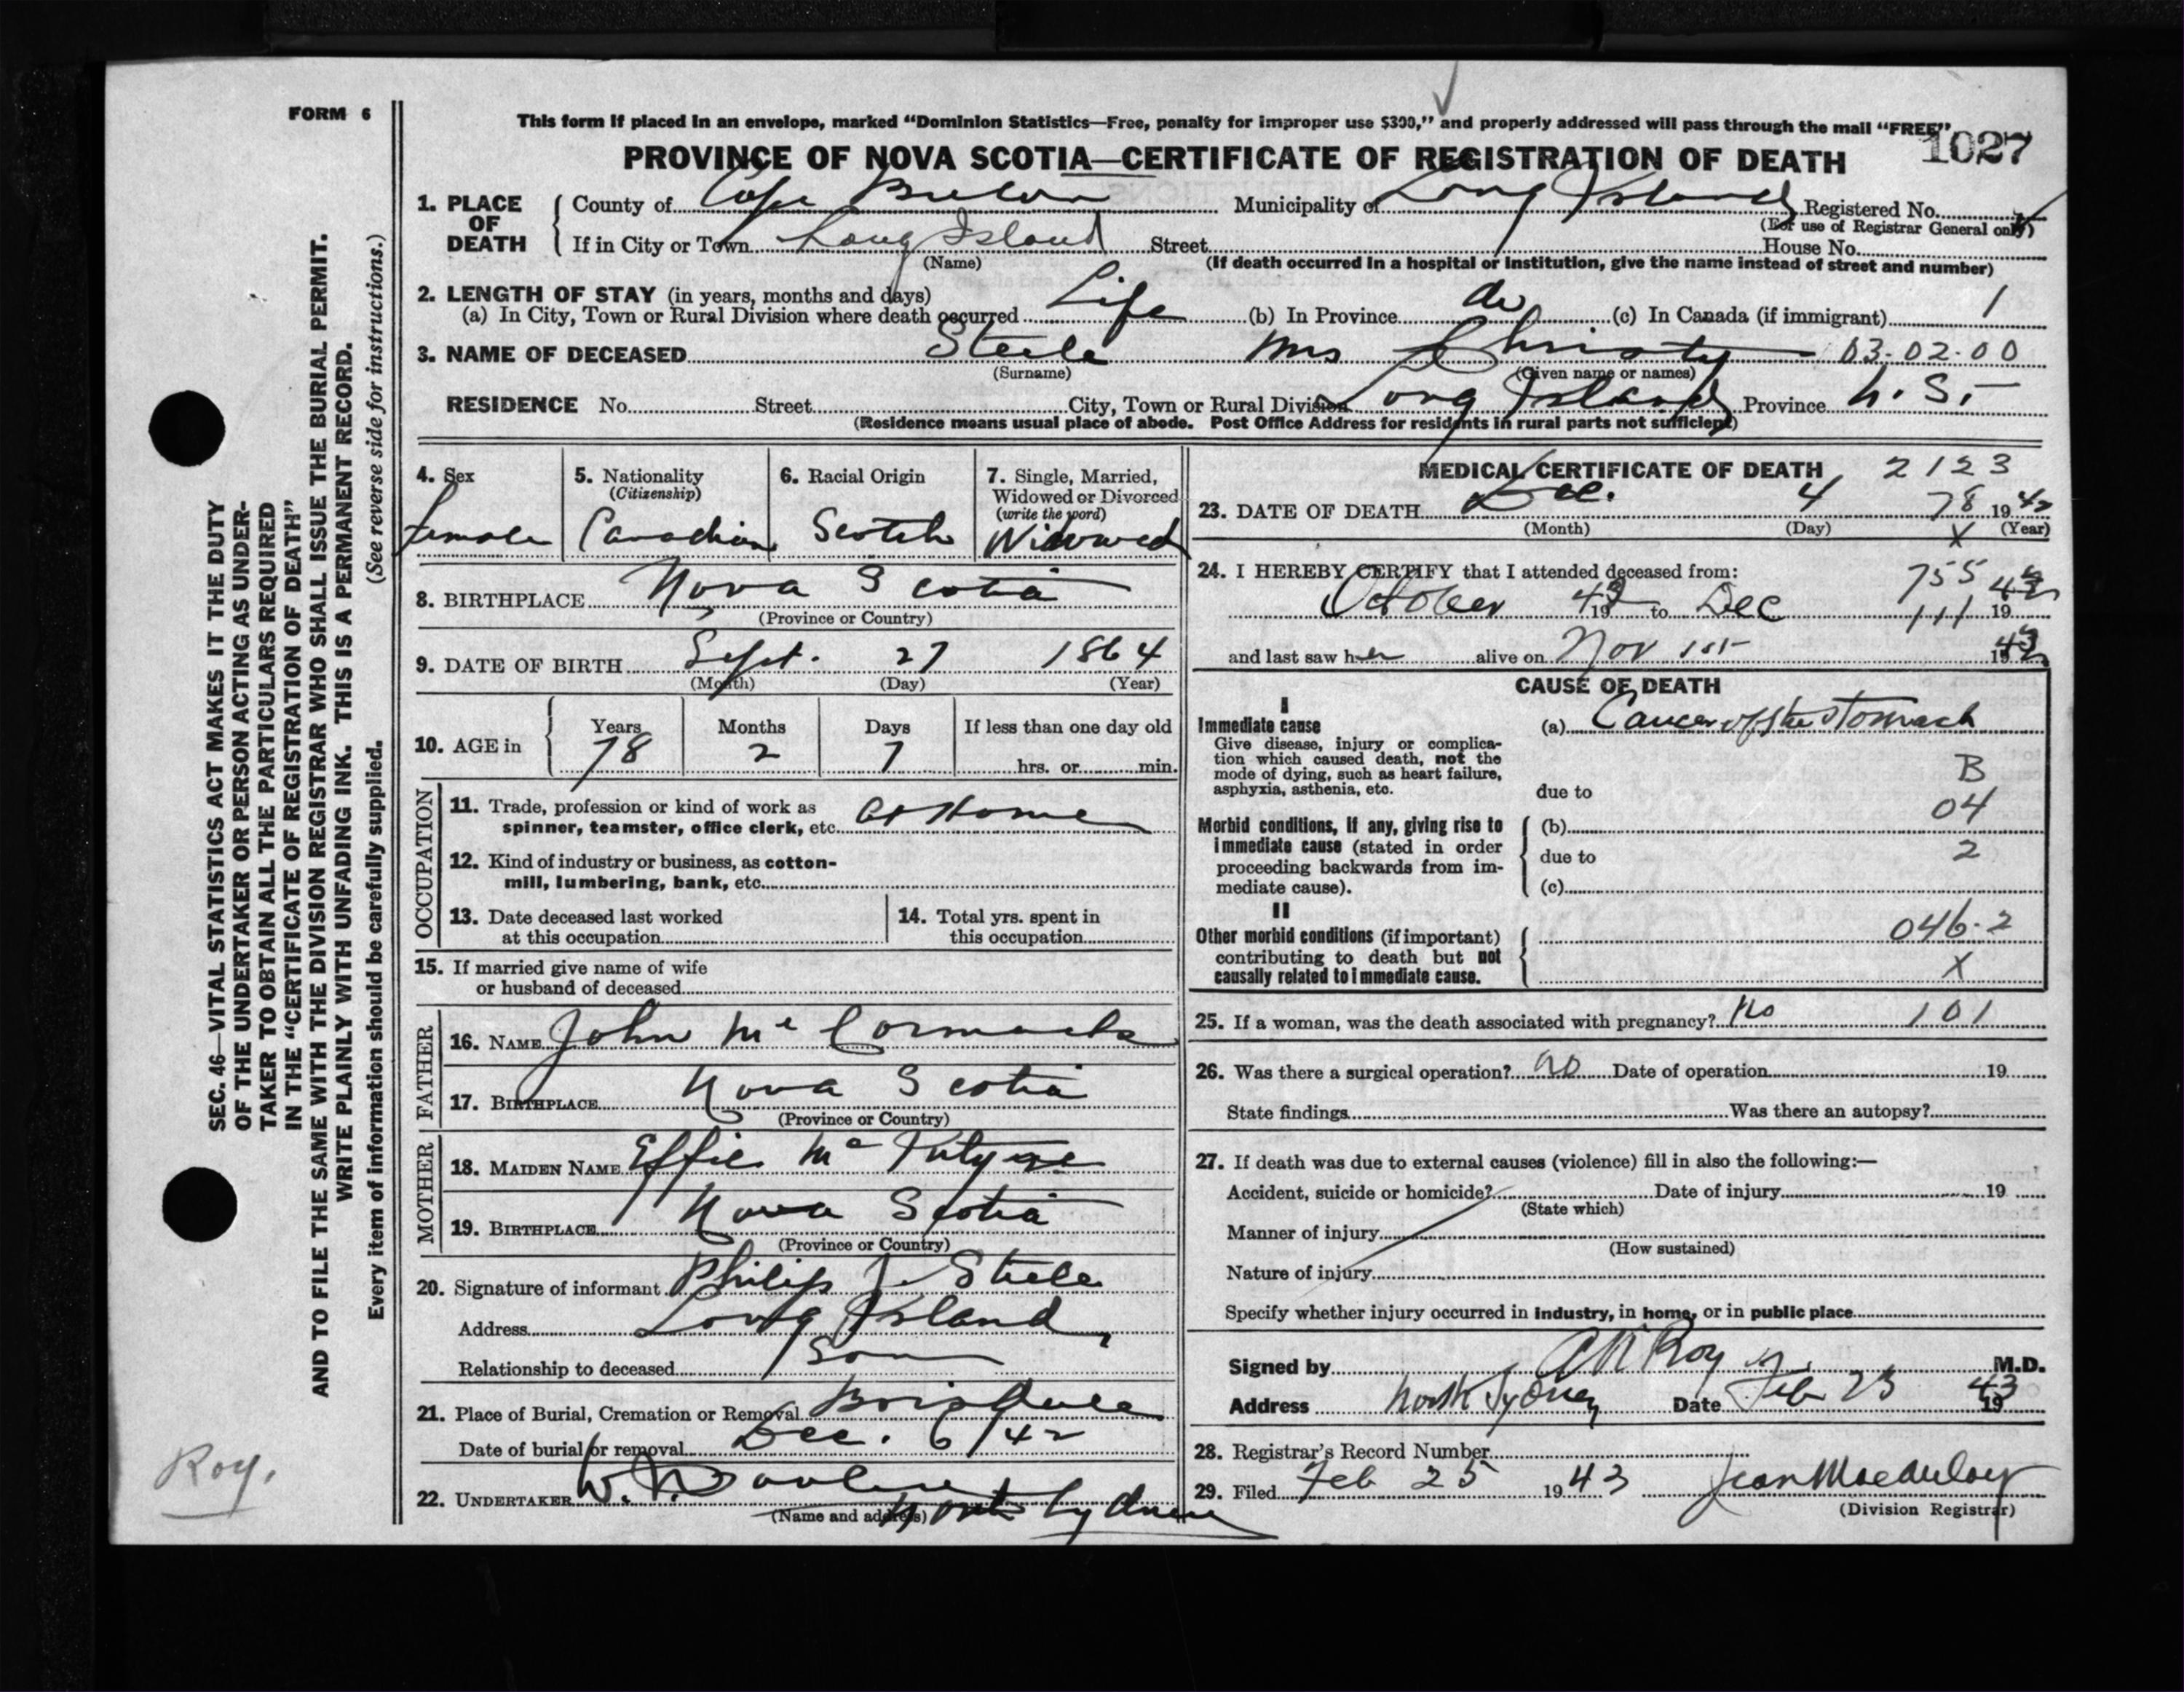 FORM 6
This form if placed in an envelope, marked "Dominion Statistics—Free, penalty for improper use $300," and properly addressed will pass through the mail "FREE".
PROVINCE OF NOVA SCOTIA—CERTIFICATE OF REGISTRATION OF DEATH 1027
1. PLACE OF DEATH
County of Cape Breton Municipality of Long Island Registered No.
(For use of Registrar General only)
If in City or Town Long Island Street House No.
(Name) (If death occurred in a hospital or institution, give the name instead of street and number)
2. LENGTH OF STAY (in years, months and days)
(a) In City, Town or Rural Division where death occurred Life (b) In Province do (c) In Canada (if immigrant) 1
3. NAME OF DECEASED Steele Mrs Christy 03-02-00
(Surname) (Given name or names)
RESIDENCE No. Street City, Town or Rural Division Long Island Province N.S.
(Residence means usual place of abode. Post Office Address for residents in rural parts not sufficient)
4. Sex
female
5. Nationality
(Citizenship)
Canadian
6. Racial Origin
Scotch
7. Single, Married,
Widowed or Divorced
(write the word)
Widowed
8. BIRTHPLACE Nova Scotia
(Province or Country)
9. DATE OF BIRTH Sept. 27 1864
(Month) (Day) (Year)
10. AGE in
Years Months Days If less than one day old
78 2 7 hrs. or min.
OCCUPATION
11. Trade, profession or kind of work as
spinner, teamster, office clerk, etc. At Home
12. Kind of industry or business, as cotton-
mill, lumbering, bank, etc.
13. Date deceased last worked
at this occupation
14. Total yrs. spent in
this occupation
15. If married give name of wife
or husband of deceased
FATHER
16. NAME John Mc Cormack
17. BIRTHPLACE Nova Scotia
(Province or Country)
MOTHER
18. MAIDEN NAME Effie Mc Intyre
19. BIRTHPLACE Nova Scotia
(Province or Country)
20. Signature of informant Philip J. Steele
Address Long Island
Relationship to deceased Son
21. Place of Burial, Cremation or Removal Boisdale
Date of burial or removal Dec. 6/42
22. UNDERTAKER W.
(Name and address) North Sydney
MEDICAL CERTIFICATE OF DEATH 2123
23. DATE OF DEATH Dec. 4 78 1942
(Month) (Day) X (Year)
24. I HEREBY CERTIFY that I attended deceased from: 755
October 42 19 to Dec 111 19 42
and last saw her alive on Nov 1st 19 42
CAUSE OF DEATH
I
Immediate cause
Give disease, injury or complica-
tion which caused death, not the
mode of dying, such as heart failure,
asphyxia, asthenia, etc.
(a) Cancer of the Stomach
B
due to
04
Morbid conditions, if any, giving rise to
immediate cause (stated in order
proceeding backwards from im-
mediate cause).
(b)
due to 2
(c)
II
Other morbid conditions (if important)
contributing to death but not
causally related to immediate cause.
046.2
X
25. If a woman, was the death associated with pregnancy? No 101
26. Was there a surgical operation? no Date of operation 19
State findings Was there an autopsy?
27. If death was due to external causes (violence) fill in also the following:—
Accident, suicide or homicide? Date of injury 19
(State which)
Manner of injury
(How sustained)
Nature of injury
Specify whether injury occurred in industry, in home, or in public place
Signed by Roy M.D.
Address North Sydney Date Feb 23 19 43
28. Registrar's Record Number
29. Filed Feb 25 1943 Jean MacAulay
(Division Registrar)
SEC. 46—VITAL STATISTICS ACT MAKES IT THE DUTY
OF THE UNDERTAKER OR PERSON ACTING AS UNDER-
TAKER TO OBTAIN ALL THE PARTICULARS REQUIRED
IN THE "CERTIFICATE OF REGISTRATION OF DEATH"
AND TO FILE THE SAME WITH THE DIVISION REGISTRAR WHO SHALL ISSUE THE BURIAL PERMIT.
WRITE PLAINLY WITH UNFADING INK. THIS IS A PERMANENT RECORD.
Every item of information should be carefully supplied. (See reverse side for instructions.)
Roy.